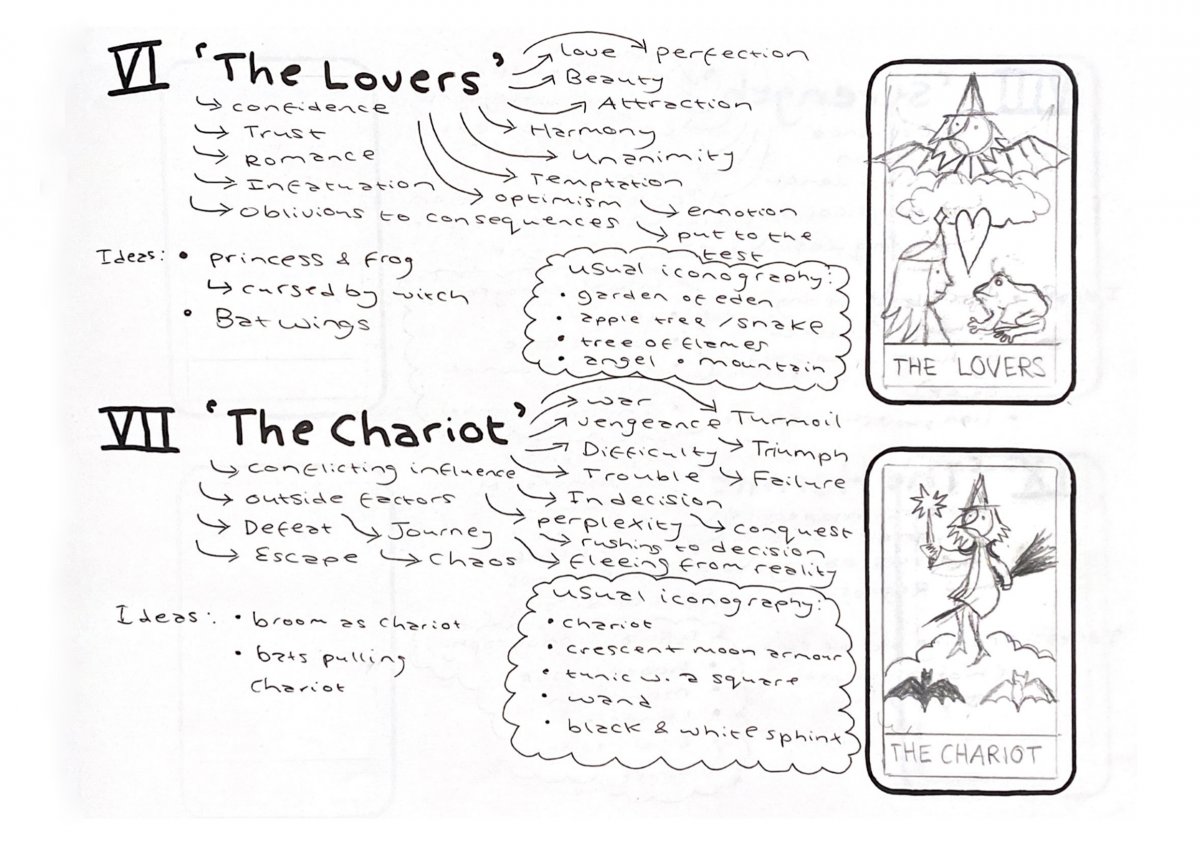 VI 'The Lovers'
Love
perfection
Beauty
Attraction
Harmony
Unanimity
Temptation
optimism
emotion
put to the
test
confidence
Trust
Romance
Infatuation
Oblivious to consequences
Ideas: • princess & frog
cursed by witch
• Bat wings
usual iconography:
• garden of eden
• apple tree / snake
• tree of flames
• angel • mountain
THE LOVERS
VII 'The Chariot'
war
vengeance
Turmoil
Difficulty
Triumph
Trouble
Failure
Indecision
perplexity
conquest
rushing to decision
fleeing from reality
conflicting influence
outside factors
Defeat
Journey
Escape
Chaos
Ideas: • broom as chariot
• bats pulling
chariot
usual iconography:
• chariot
• crescent moon armour
• tunic w. a square
• wand
• black & white sphinx
THE CHARIOT